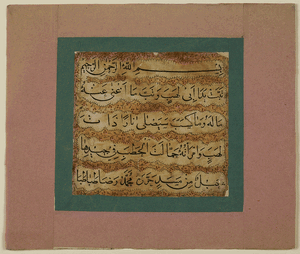 بسم الله الرحمن الرحيم
تبت يدا ابى لهب وتب ما اغنى عنه
ماله وما كسب سيصلى نارا ذات
لهب وامراته حمالة الحطب فى جيدها
حبل من مسد محمد